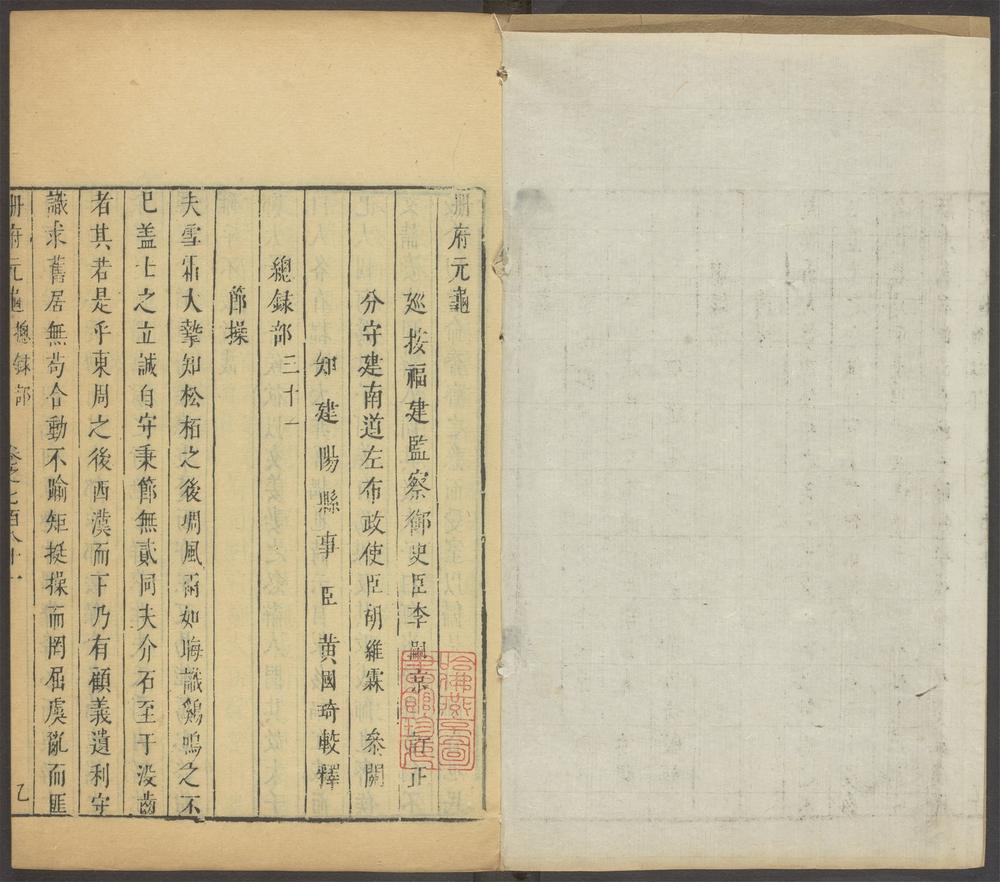 冊府元龜
廵按福建監察御史臣李嗣京訂正
分守建南道左布政使臣胡維霖叅閱
知建陽縣事臣黃國琦較釋
總錄部三十一
節操
夫雪霜大摯知松栢之後凋風雨如晦識鷄鳴之不
巳盖士之立誠自守秉節無貳同夫介石至于沒齒
者其若是乎東周之後西漢而下乃有顧義遺利守
識求舊居無苟合動不踰矩挺操而罔屈處亂而匪
冊府元龜 總錄部 卷之七百八十一 乙
哈佛燕京圖
書館珍藏